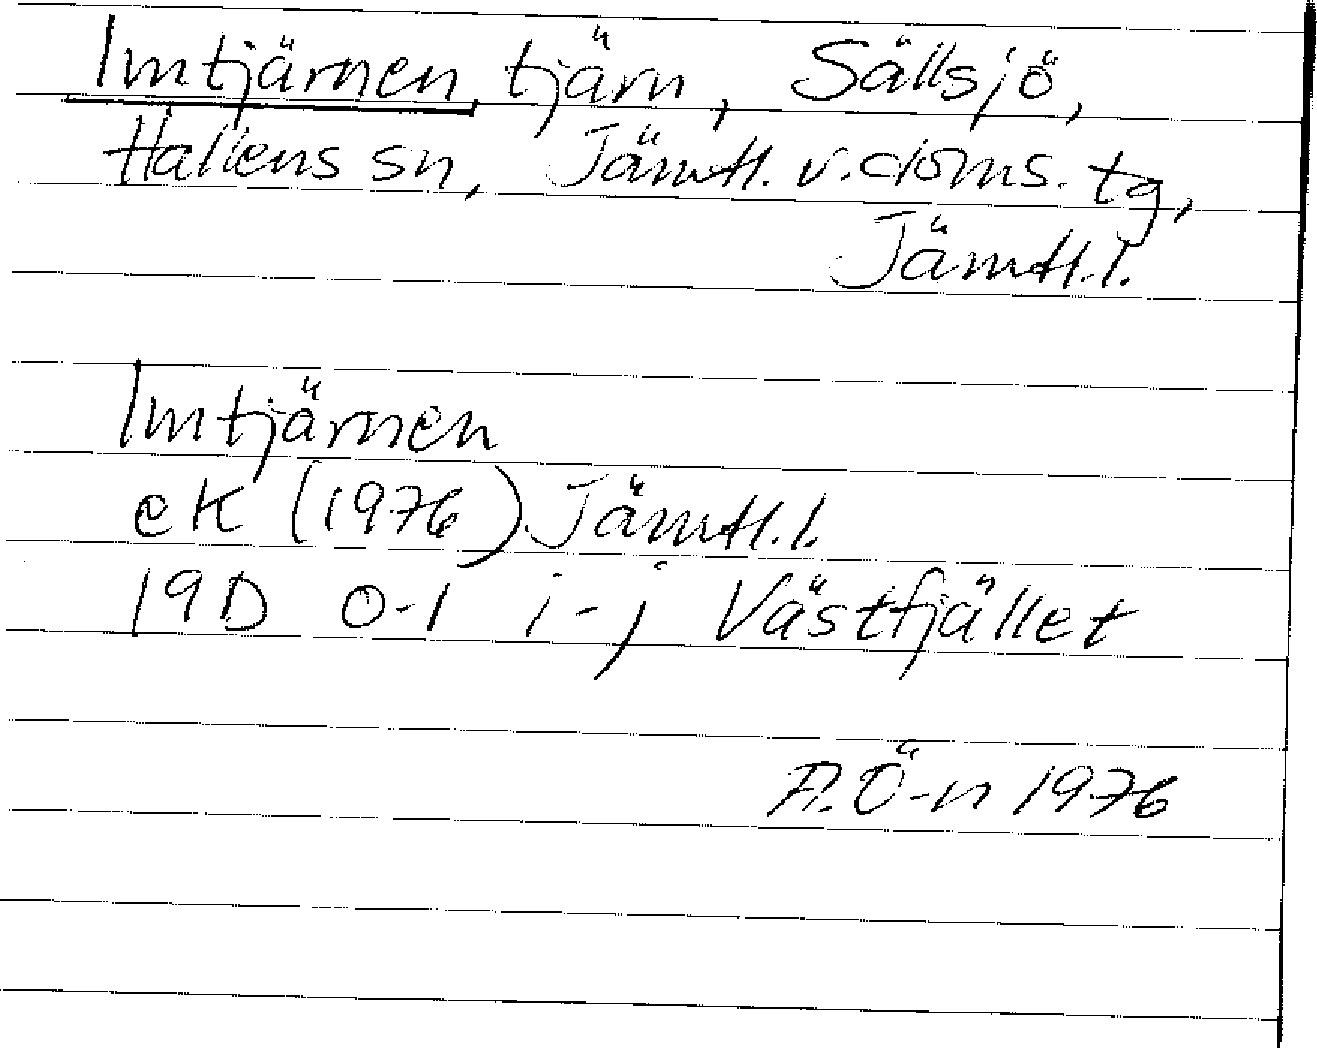 Imtjärnen, tjärn, Sällsjö,
Hallens sn, Jämtl. v. doms. tg,
Jämtl. l.
Imtjärnen
ek (1976) Jämtl. l.
19D 0-1 i-j Västfjället
A. Ö-n 1976